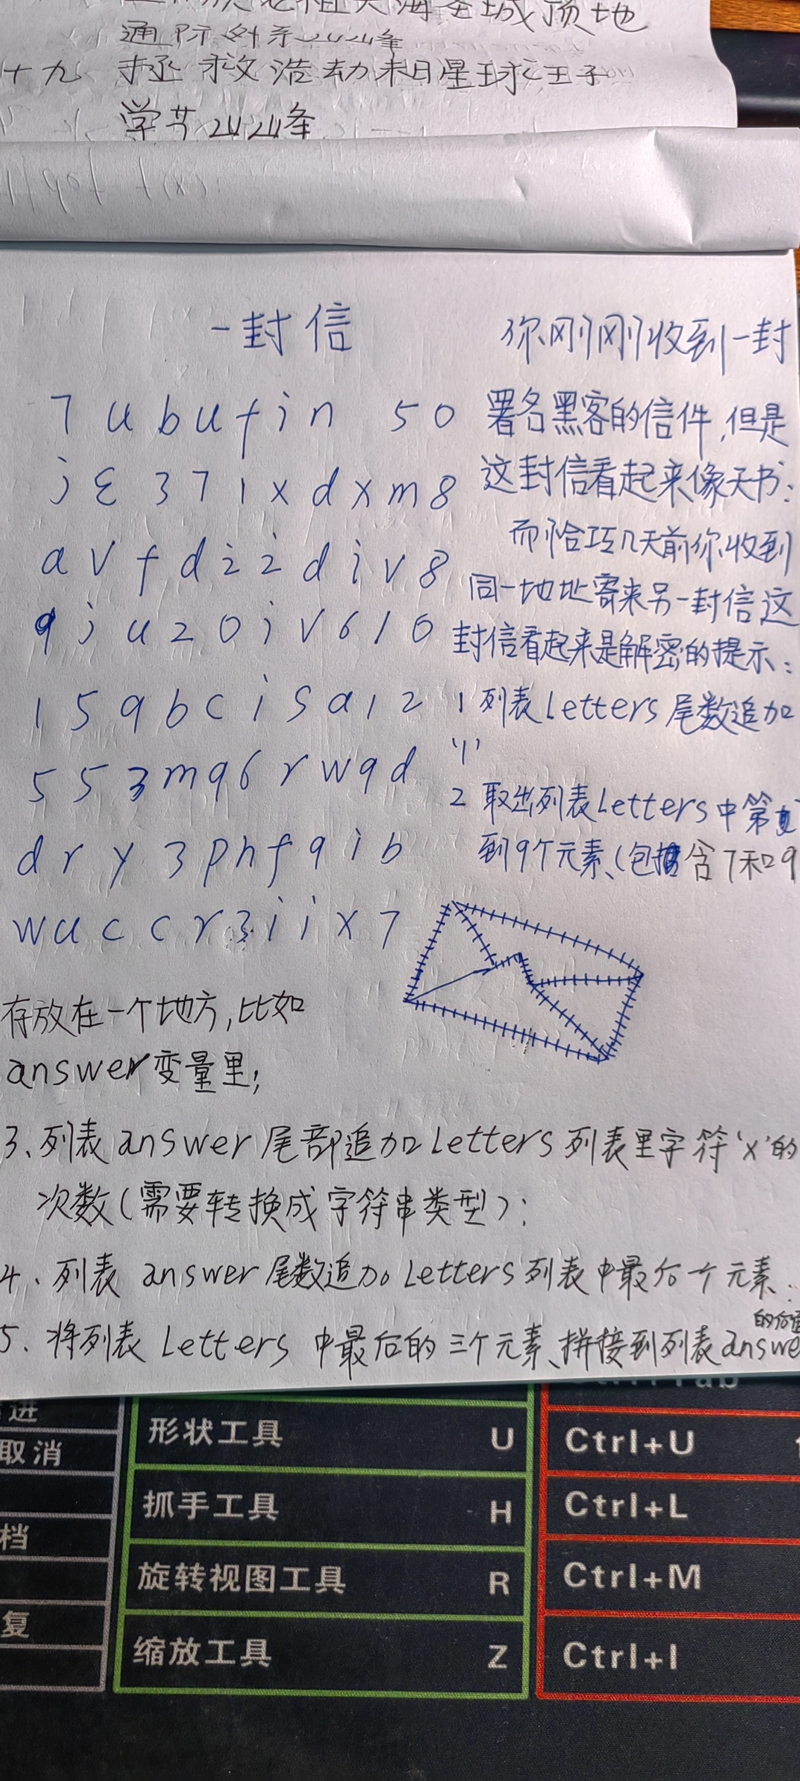 通
十九 拯救浩劫
学
一封信
7 u b u f i n 5 0
j ε 3 7 1 x d x m 8
a v f d 2 2 d i v 8
9 j u 2 0 i v 6 1 0
1 5 9 b c i s a 1 2
5 5 3 m 9 6 r w 9 d
d r y 3 p h f 9 i b
w u c c r 3 i i x 7
你刚刚收到一封
署名黑客的信件,但是
这封信看起来像天书:
而恰巧几天前你收到
同一地址寄来另一封信这
封信看起来是解密的提示:
1 列表letters尾数追加
'1'
2 取出列表letters中第
到9个元素、(包含7和9
存放在一个地方,比如
answer变量里;
3、列表answer尾部追加Letters列表里字符'x'的
次数(需要转换成字符串类型):
4、列表answer尾数追加Letters列表中最后一个元素:
5、将列表Letters中最后的三个元素、拼接到列表answe
的后面
进
取消
档
复
形状工具 U
抓手工具 H
旋转视图工具 R
缩放工具 Z
Ctrl+U
Ctrl+L
Ctrl+M
Ctrl+I